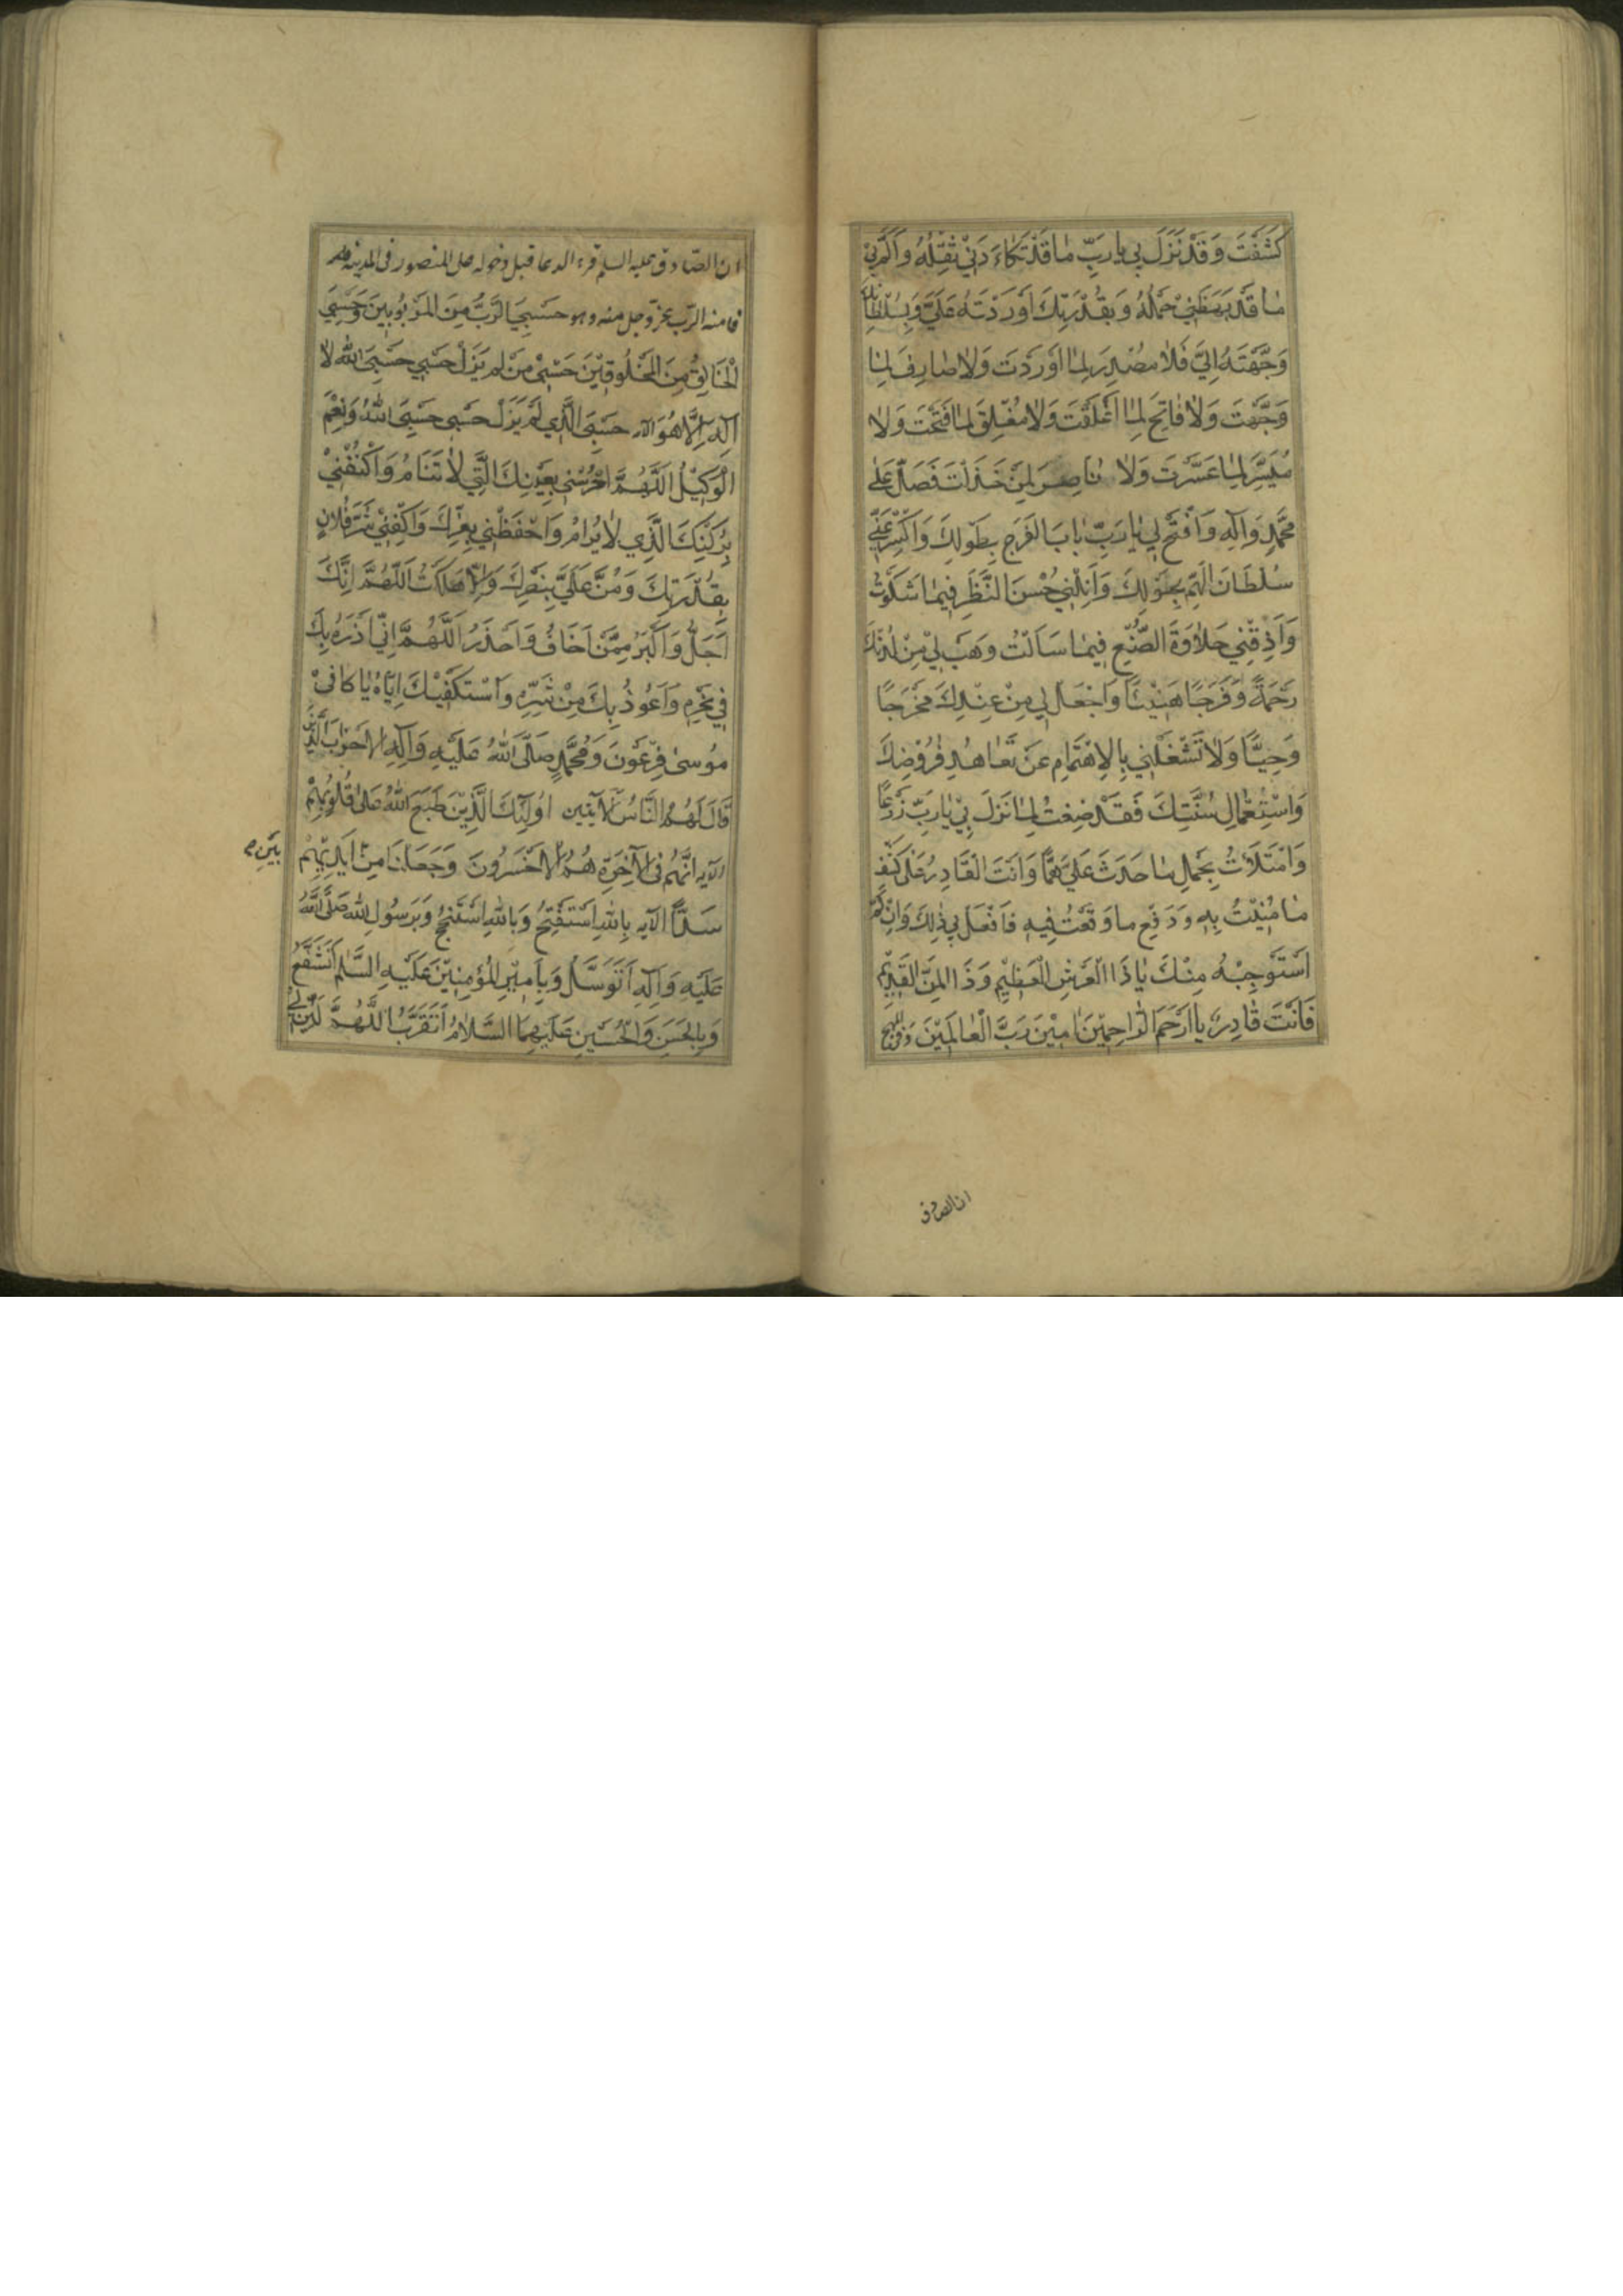 كَشَفْتَ وَقَدْ نَزَلَ بِي يا رَبِّ مٰا قَدْ تَكَاءَدَنِي ثِقْلُهُ وَاَلَمَّ بِي
مٰا قَدْ بَهَظَنِي حَمْلُهُ وَبِقُدْرَتِكَ اَوْرَدْتَهُ عَلَيَّ وَبِسُلْطٰانِكَ
وَجَّهْتَهُ اِلَيَّ فَلاٰ مُصْدِرَ لِمٰا اَوْرَدْتَ وَلاٰ صٰارِفَ لِمٰا
وَجَّهْتَ وَلاٰ فٰاتِحَ لِمٰا اَغْلَقْتَ وَلاٰ مُغْلِقَ لِمٰا فَتَحْتَ وَلاٰ
مُيَسِّرَ لِمٰا عَسَّرْتَ وَلاٰ نٰاصِرَ لِمَنْ خَذَلْتَ فَصَلِّ عَلٰى
مُحَمَّدٍ وَآلِهِ وَافْتَحْ لِي يٰا رَبِّ بٰابَ الْفَرَجِ بِطَوْلِكَ وَاكْسِرْ عَنِّي
سُلْطَانَ الْهَمِّ بِحَوْلِكَ وَاَنِلْنِي حُسْنَ النَّظَرِ فِيمٰا شَكَوْتُ
وَاَذِقْنِي حَلاٰوَةَ الصُّنْعِ فِيمٰا سَاَلْتُ وَهَبْ لِي مِنْ لَدُنْكَ
رَحْمَةً وَفَرَجًا هَنِيْئًا وَاجْعَلْ لِي مِنْ عِنْدِكَ مَخْرَجًا
وَحِيًّا وَلاٰ تَشْغَلْنِي بِالاِهْتِمٰامِ عَنْ تَعٰاهُدِ فُرُوْضِكَ
وَاسْتِعْمٰالِ سُنَّتِكَ فَقَدْ ضِقْتُ لِمٰا نَزَلَ بِي يٰا رَبِّ ذَرْعًا
وَامْتَلَأْتُ بِحَمْلِ مٰا حَدَثَ عَلَيَّ هَمًّا وَاَنْتَ الْقَادِرُ عَلٰى كَشْفِ
مٰا مُنِيْتُ بِهِ وَدَفْعِ ما وَقَعْتُ فِيهِ فَافْعَلْ بِي ذٰلِكَ وَاِنْ لَمْ
اَسْتَوْجِبْهُ مِنْكَ يٰا ذَا الْعَرْشِ الْعَظِيْمِ وَذَا الْمَنِّ الْقَدِيْمِ
فَاَنْتَ قٰادِرٌ يا اَرْحَمَ الرّٰاحِمِيْنَ اٰمِيْنَ رَبَّ الْعٰالَمِيْنَ وفي المهج
ان الصادق
ان الصّادق عليه السلم قرء الدعا قبل دخوله على المنصور في المدينة
فامنه الرب عزّ وجل منه وهو حَسْبِيَ الرَّبُّ مِنَ الْمَرْبُوبِينَ وَحَسْبِيَ
الْخَالِقُ مِنَ الْمَخْلُوقِيْنَ حَسْبِيْ مَنْ لَمْ يَزَلْ حَسْبِي حَسْبِيَ اللّٰهُ لاٰ
اِلٰهَ اِلَّا هُوَ الآيه حَسْبِيَ الَّذِي لَمْ يَزَلْ حَسْبِي حَسْبِيَ اللّٰهُ وَنِعْمَ
الْوَكِيْلُ اَللّٰهُمَّ احْرُسْنِي بِعَيْنِكَ الَّتِي لاٰ تَنَامُ وَاكْنُفْنِيْ
بِرُكْنِكَ الَّذِي لاٰ يُرَامُ وَاحْفَظْنِي بِعِزِّكَ وَاكْفِنِيْ شَرَّ فُلانٍ
بِقُدْرَتِكَ وَمُنَّ عَلَيَّ بِنَصْرِكَ وَاِلّاٰ هَلَكْتُ اَللّٰهُمَّ اِنَّكَ
اَجَلُّ وَاَكْبَرُ مِمَّنْ اَخَافُ وَاَحْذَرُ اَللّٰهُمَّ اِنِّي اَدْرَءُ بِكَ
فِي نَحْرِهِ وَاَعُوذُ بِكَ مِنْ شَرِّهِ وَاَسْتَكْفِيْكَ اِيّٰاهُ يٰا كافِيْ
مُوسىٰ فِرْعَوْنَ وَمُحَمَّدٍ صَلَّى اللّٰهُ عَلَيْهِ وَآلِهِ الْاَحْزٰابَ الَّذِيْنَ
قَالَ لَهُمُ النَّاسُ الآيتين اُولٰئِكَ الَّذِيْنَ طَبَعَ اللّٰهُ عَلىٰ قُلُوْبِهِمْ
الآيه اَنَّهُمْ فِي الْآخِرَةِ هُمُ الْاَخْسَرُونَ وَجَعَلْنَا مِنْ اَيْدِيْهِمْ
بَيْنِ
سَدًّا الآيه بِاللّٰهِ اَسْتَفْتِحُ وَبِاللّٰهِ اَسْتَنْجِحُ وَبِرَسُولِ اللّٰهِ صَلَّى اللّٰهُ
عَلَيْهِ وَآلِهِ اَتَوَسَّلُ وَبِاَمِيْرِ الْمُؤْمِنِيْنَ عَلَيْهِ السَّلٰمُ اَتَشَفَّعُ
وَبِالْحَسَنِ وَالْحُسَيْنِ عَلَيْهِمَا السَّلاٰمُ اَتَقَرَّبُ اَللّٰهُمَّ لَيِّنْ لِيْ